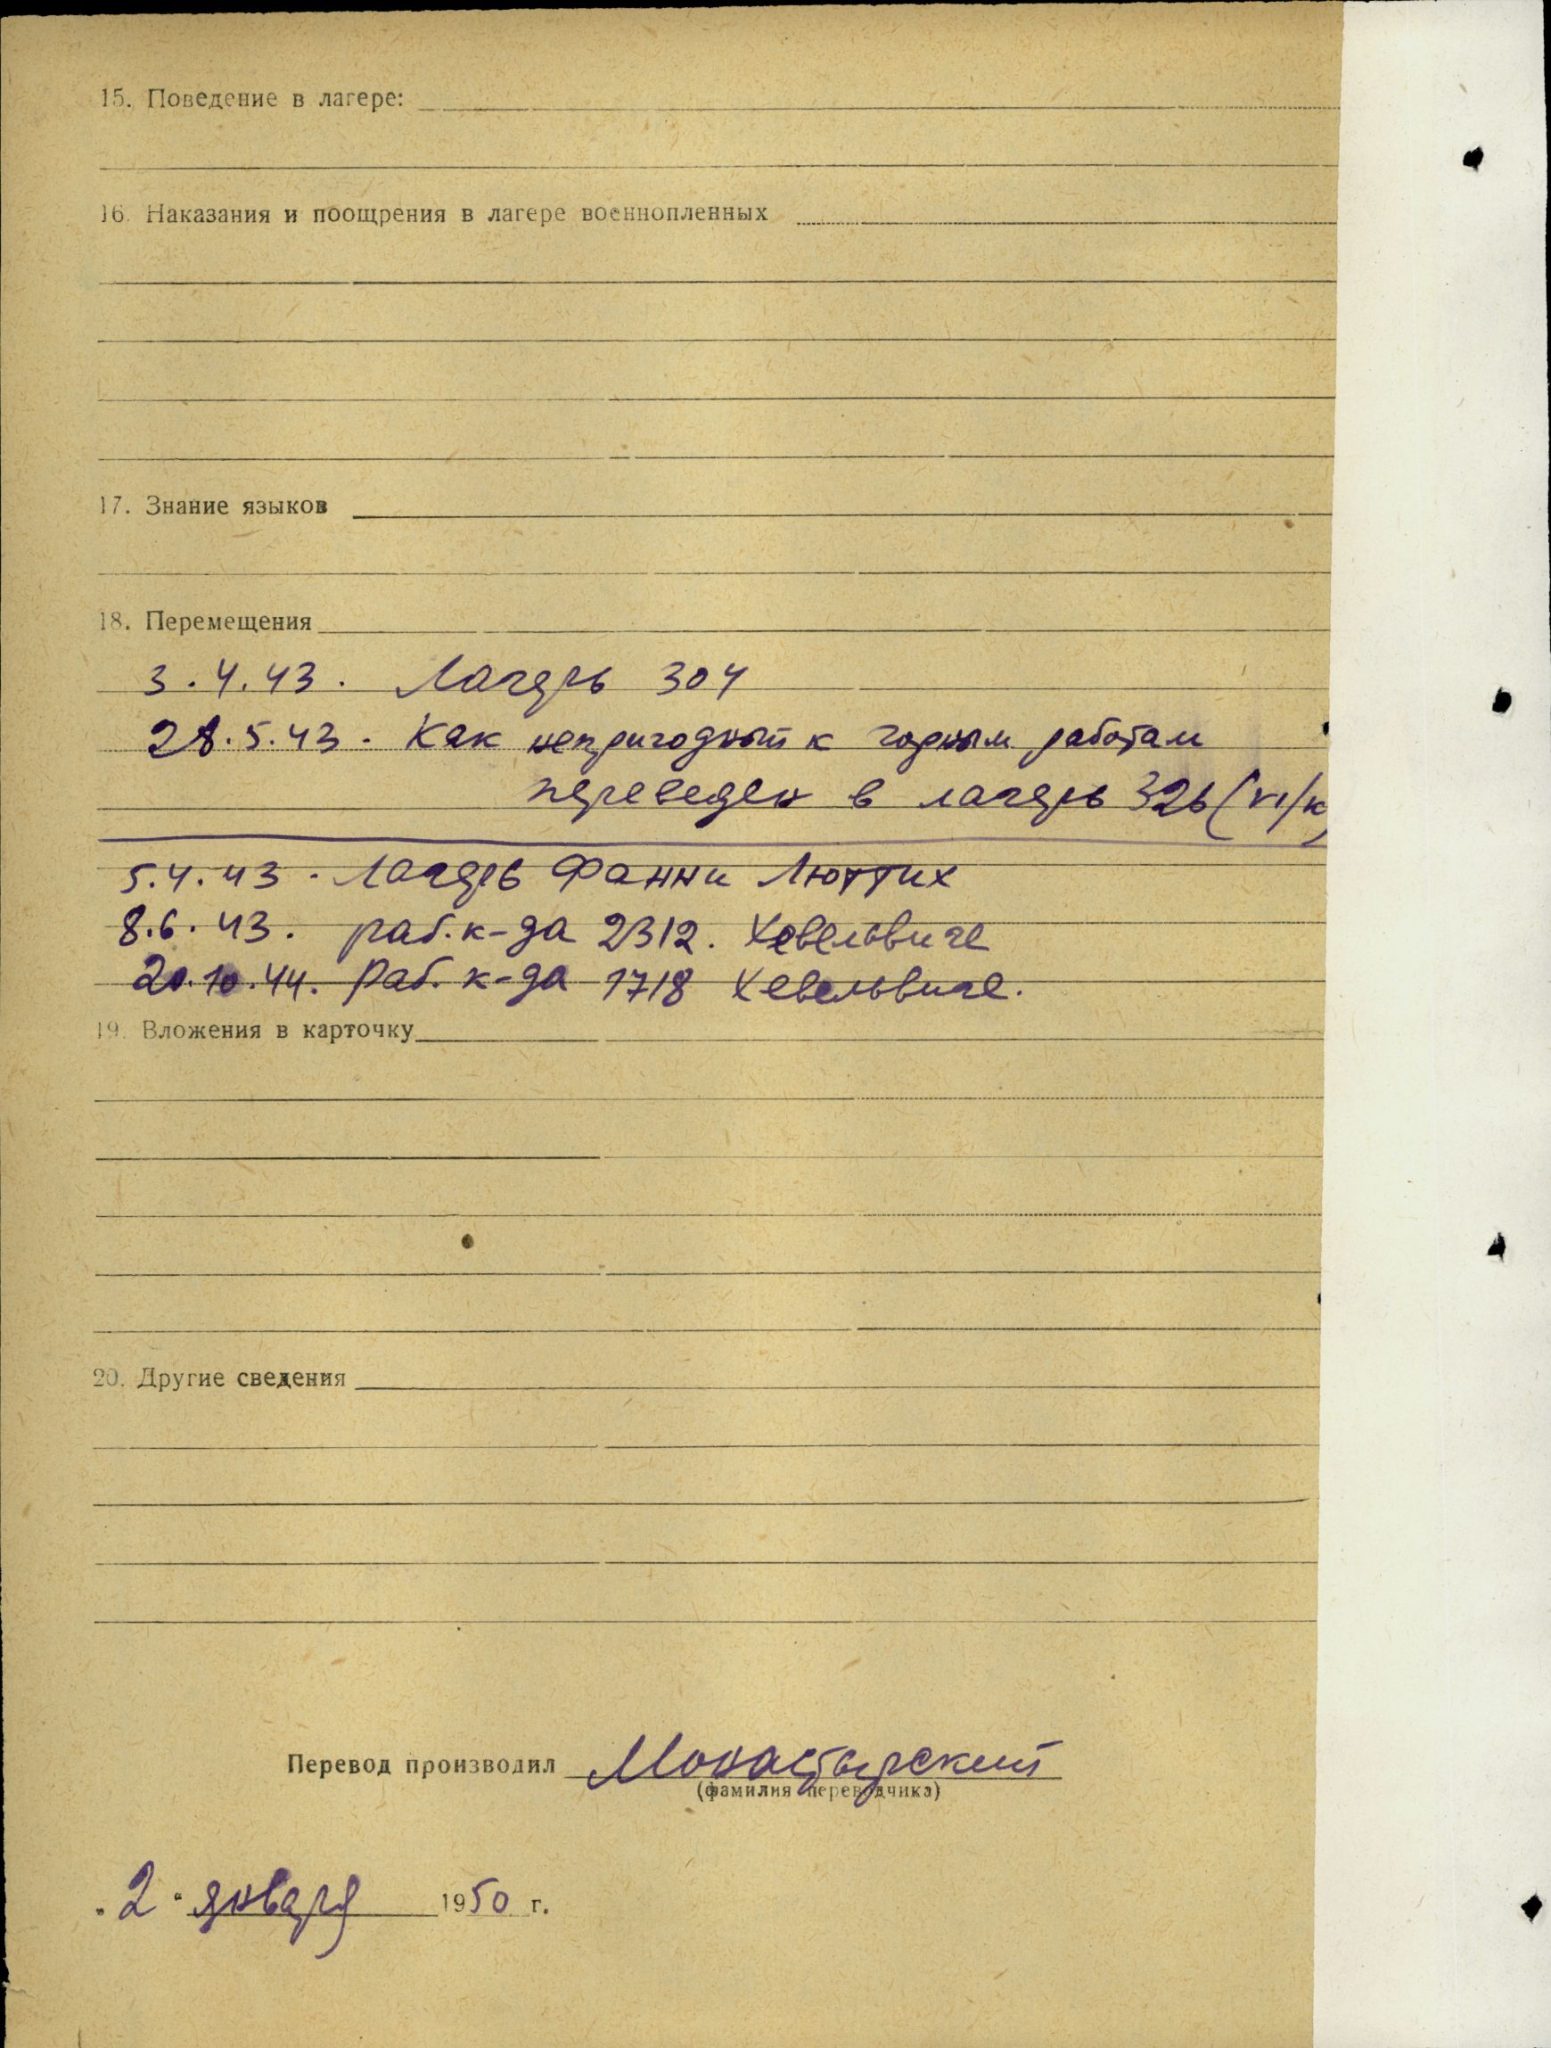 15. Поведение в лагере:
16. Наказания и поощрения в лагере военнопленных
17. Знание языков
18. Перемещения
3.4.43. Лагерь 304
28.5.43. Как непригодный к горным работам
переведен в лагерь 326 (VI/к)
5.4.43. Лагерь Фанни Люттих
8.6.43. раб. к-да 2312. Хевельвиге
20.10.44. Раб. к-да 1718 Хевельвиге.
19. Вложения в карточку
20. Другие сведения
Перевод производил Монастырский
(фамилия переводчика)
"2" января 1950 г.